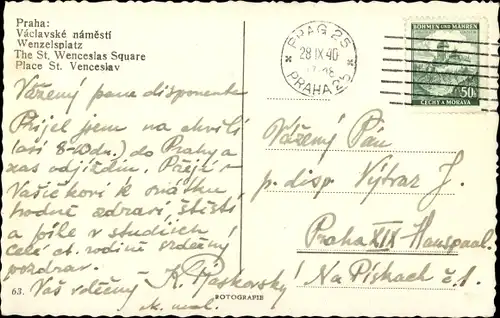 Praha:
Václavské náměstí
Wenzelsplatz
The St. Wenceslas Square
Place St. Venceslav
PRAG 25
28 IX 40
PRAHA 25
BÖHMEN UND MÄHREN
50h
ČECHY A MORAVA
Vážený pane disponente
Přijel jsem na chvíli
(asi 8-10 dní) do Prahy a
zas odjíždím. Přeji
Vašíčkovi k svátku
hodně zdraví, štěstí
a píle v studiích!
Celé ct. rodině srdečný
pozdrav.
Váš vděčný - K. Raskovský
ak. mal.
Vážený Pán
p. disp. Výtvar J.
Praha XIX
Na Pískách č. 1.
63.
ROTOGRAFIE